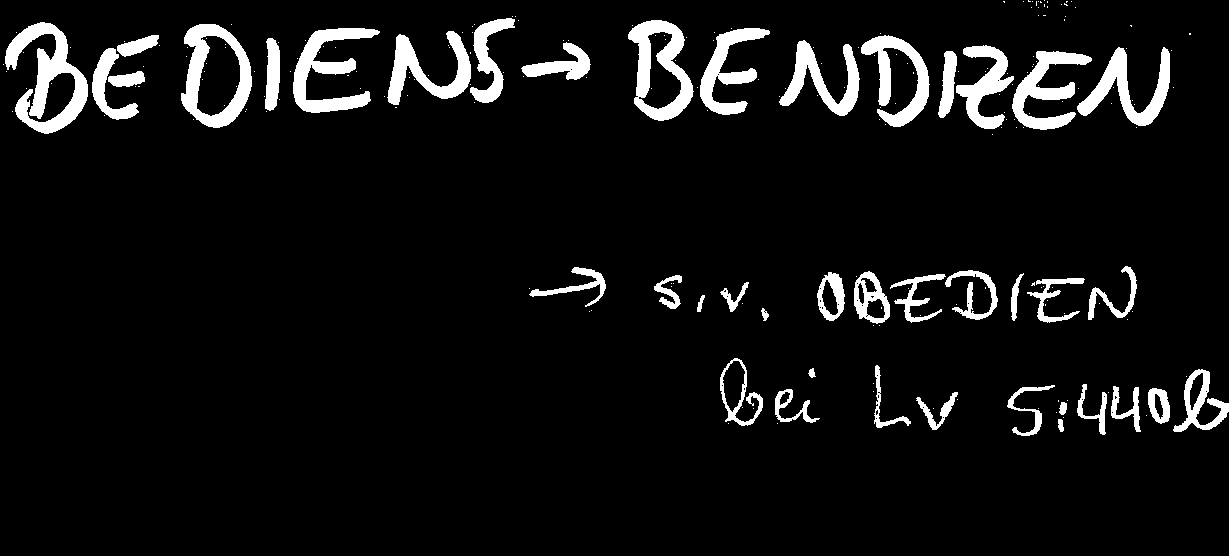 BEDIENS → BENDIZEN
→ s.v. OBEDIEN
bei Lv 5:440b